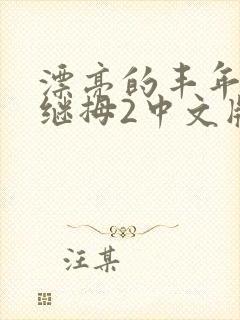 漂亮的丰年
继拇2中文版
汪某